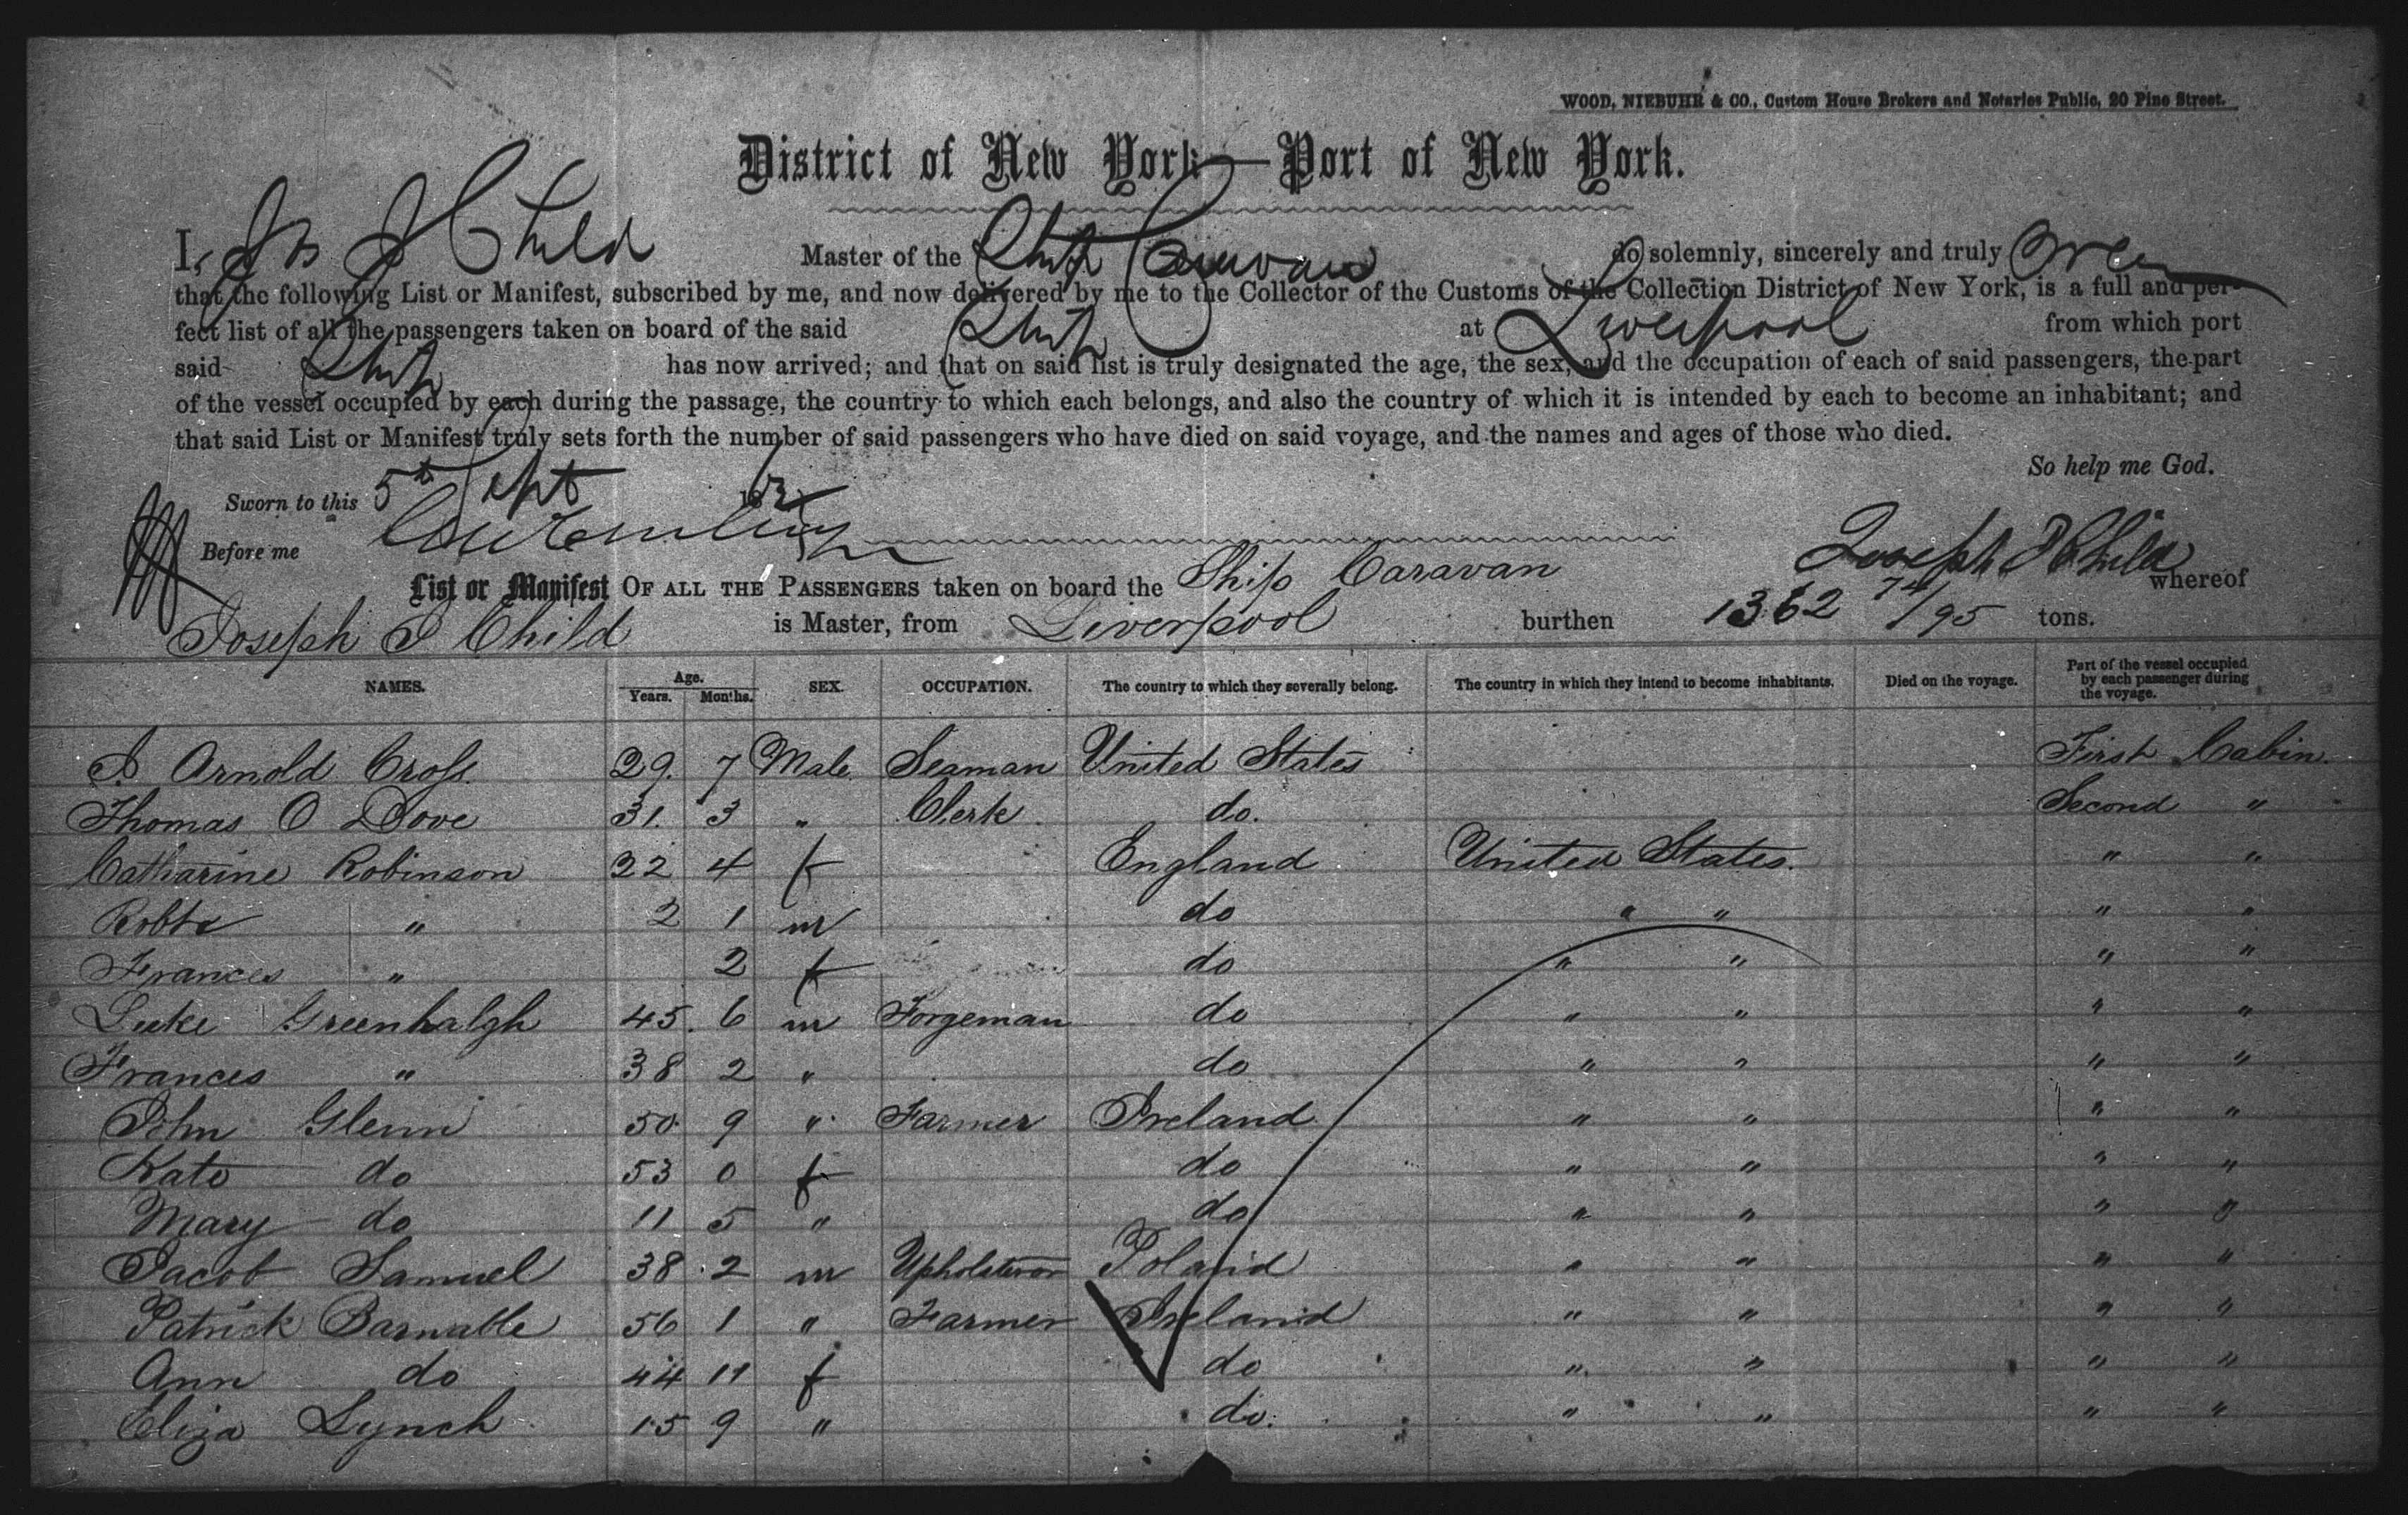 WOOD, NIEBUHR & CO., Custom House Brokers and Notaries Public, 20 Pine Street.
District of New York—Port of New York.
I, Jos J Child Master of the Ship Caravan do solemnly, sincerely and truly
that the following List or Manifest, subscribed by me, and now delivered by me to the Collector of the Customs of the Collection District of New York, is a full and per-
fect list of all the passengers taken on board of the said Ship at Liverpool from which port
said Ship has now arrived; and that on said list is truly designated the age, the sex, and the occupation of each of said passengers, the part
of the vessel occupied by each during the passage, the country to which each belongs, and also the country of which it is intended by each to become an inhabitant; and
that said List or Manifest truly sets forth the number of said passengers who have died on said voyage, and the names and ages of those who died.
So help me God.
Sworn to this 5th Sept 186
Before me
Joseph J Child
List or Manifest OF ALL THE PASSENGERS taken on board the Ship Caravan whereof
Joseph J Child is Master, from Liverpool burthen 1362 74/95 tons.
NAMES. Age. Years. Months. SEX. OCCUPATION. The country to which they severally belong. The country in which they intend to become inhabitants. Died on the voyage. Part of the vessel occupied by each passenger during the voyage.
J. Arnold Cross 29. 7 Male Seaman United States First Cabin.
Thomas O Dove 31. 3 " Clerk do. Second "
Catharine Robinson 22 4 f England United States. " "
Robt " 2 1 m do " " " "
Frances " 2 f do " " " "
Luke Greenhalgh 45. 6 m Forgeman do " " " "
Frances " 38 2 " do " " " "
John Glenn 50 9 " Farmer Ireland " " " "
Kate do 53 0 f do " " " "
Mary do 11 5 " do " " " "
Jacob Samuel 38 2 m Upholsterer Poland " " " "
Patrick Barnable 56 1 " Farmer Ireland " " " "
Ann do 44 11 f do " " " "
Eliza Lynch 15 9 " do. " " " "